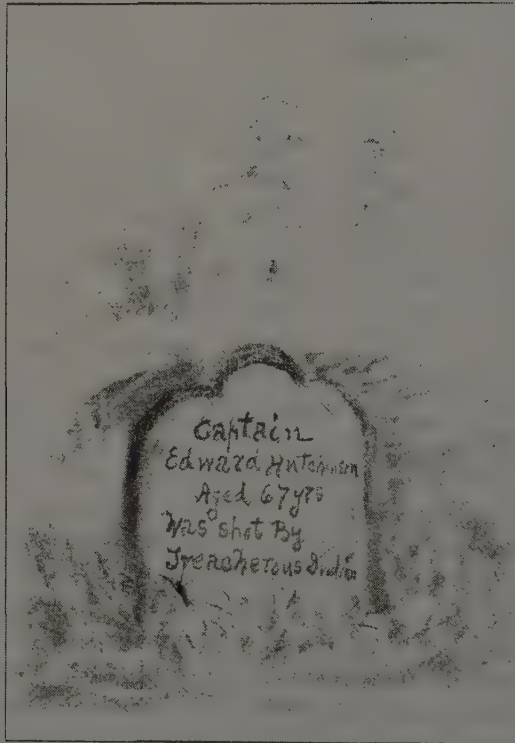 Captain
Edward Hutchinson
Aged 67 yrs
Was shot By
Treacherous Indians